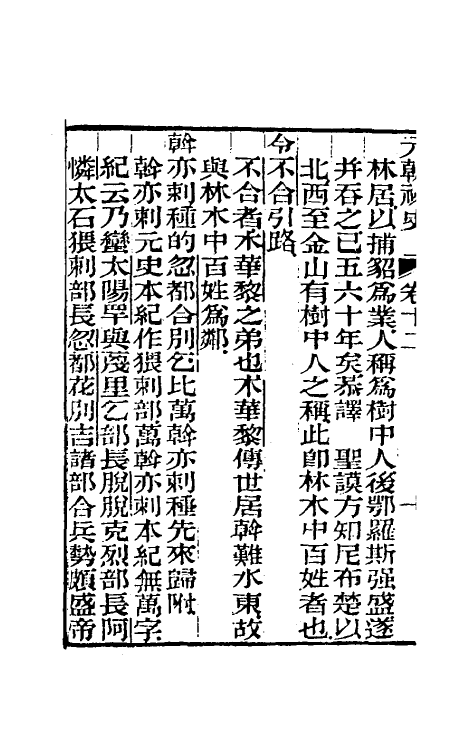 元朝祕史 卷十二 十
林居以捕貂爲業人稱爲樹中人後鄂羅斯强盛遂
并吞之已五六十年矣恭譯 聖謨方知尼布楚以
北西至金山有樹中人之稱此卽林木中百姓者也
令不合引路
不合者木華黎之弟也木華黎傳世居斡難水東故
與林木中百姓爲鄰
斡亦剌種的忽都合別乞比萬斡亦剌種先來歸附
斡亦剌元史本紀作猥剌部萬斡亦剌本紀無萬字
紀云乃蠻太陽罕與蔑里乞部長脫脫克烈部長阿
憐太石猥剌部長忽都花別吉諸部合兵勢頗盛帝